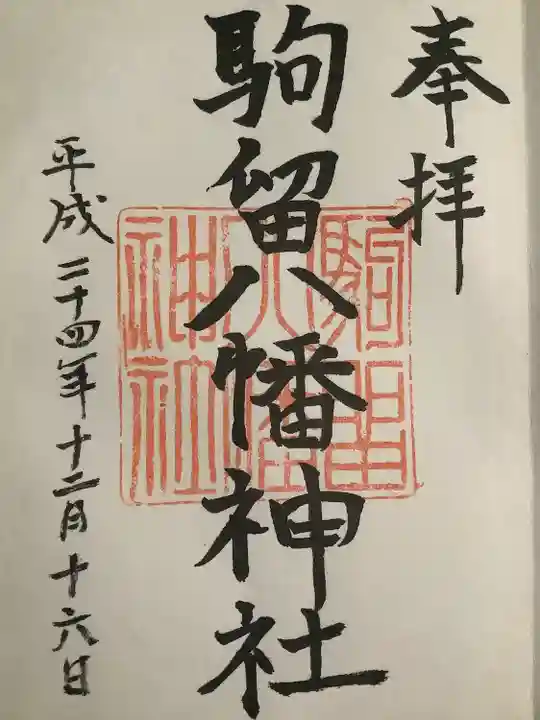 奉拝
駒留八幡神社
駒留
八幡
神社
平成二十四年十二月十六日